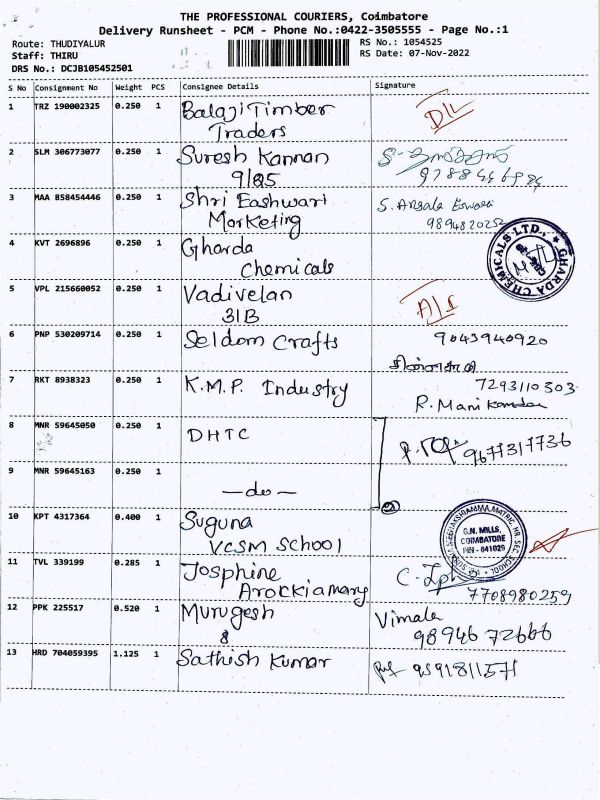 THE PROFESSIONAL COURIERS, Coimbatore
Delivery Runsheet - PCM - Phone No.:0422-3505555 - Page No.:1
Route: THUDIYALUR
RS No.: 1054525
Staff: THIRU
RS Date: 07-Nov-2022
DRS No.: DCJB105452501
S No Consignment No Weight PCS Consignee Details Signature
1 TRZ 190002325 0.250 1 Balaji Timber
Traders
D/L
2 SLM 306773077 0.250 1 Suresh Kannan
9/85
3 MAA 858454446 0.250 1 Shri Eashwari
Marketing
S. Angala Eswari
9894820252
4 KVT 2696896 0.250 1 Gharda
Chemicals
GHARDA CHEMICALS LTD.,
5 VPL 215660052 0.250 1 Vadivelan
31B
6 PNP 530209714 0.250 1 Seldom Crafts
9043940920
7 RKT 8938323 0.250 1 K.M.P. Industry
7293110303
R. Mani
8 MNR 59645050 0.250 1 DHTC
9677317736
9 MNR 59645163 0.250 1 —do—
10 KPT 4317364 0.400 1 Suguna
VCSM School
G.N. MILLS,
COIMBATORE
PIN - 641029
11 TVL 339199 0.285 1 Josphine
Arokkiamary
7708980259
12 PPK 225517 0.520 1 Murugesh
8
Vimala
98946 72666
13 HRD 704059395 1.125 1 Sathish Kumar
9591811571